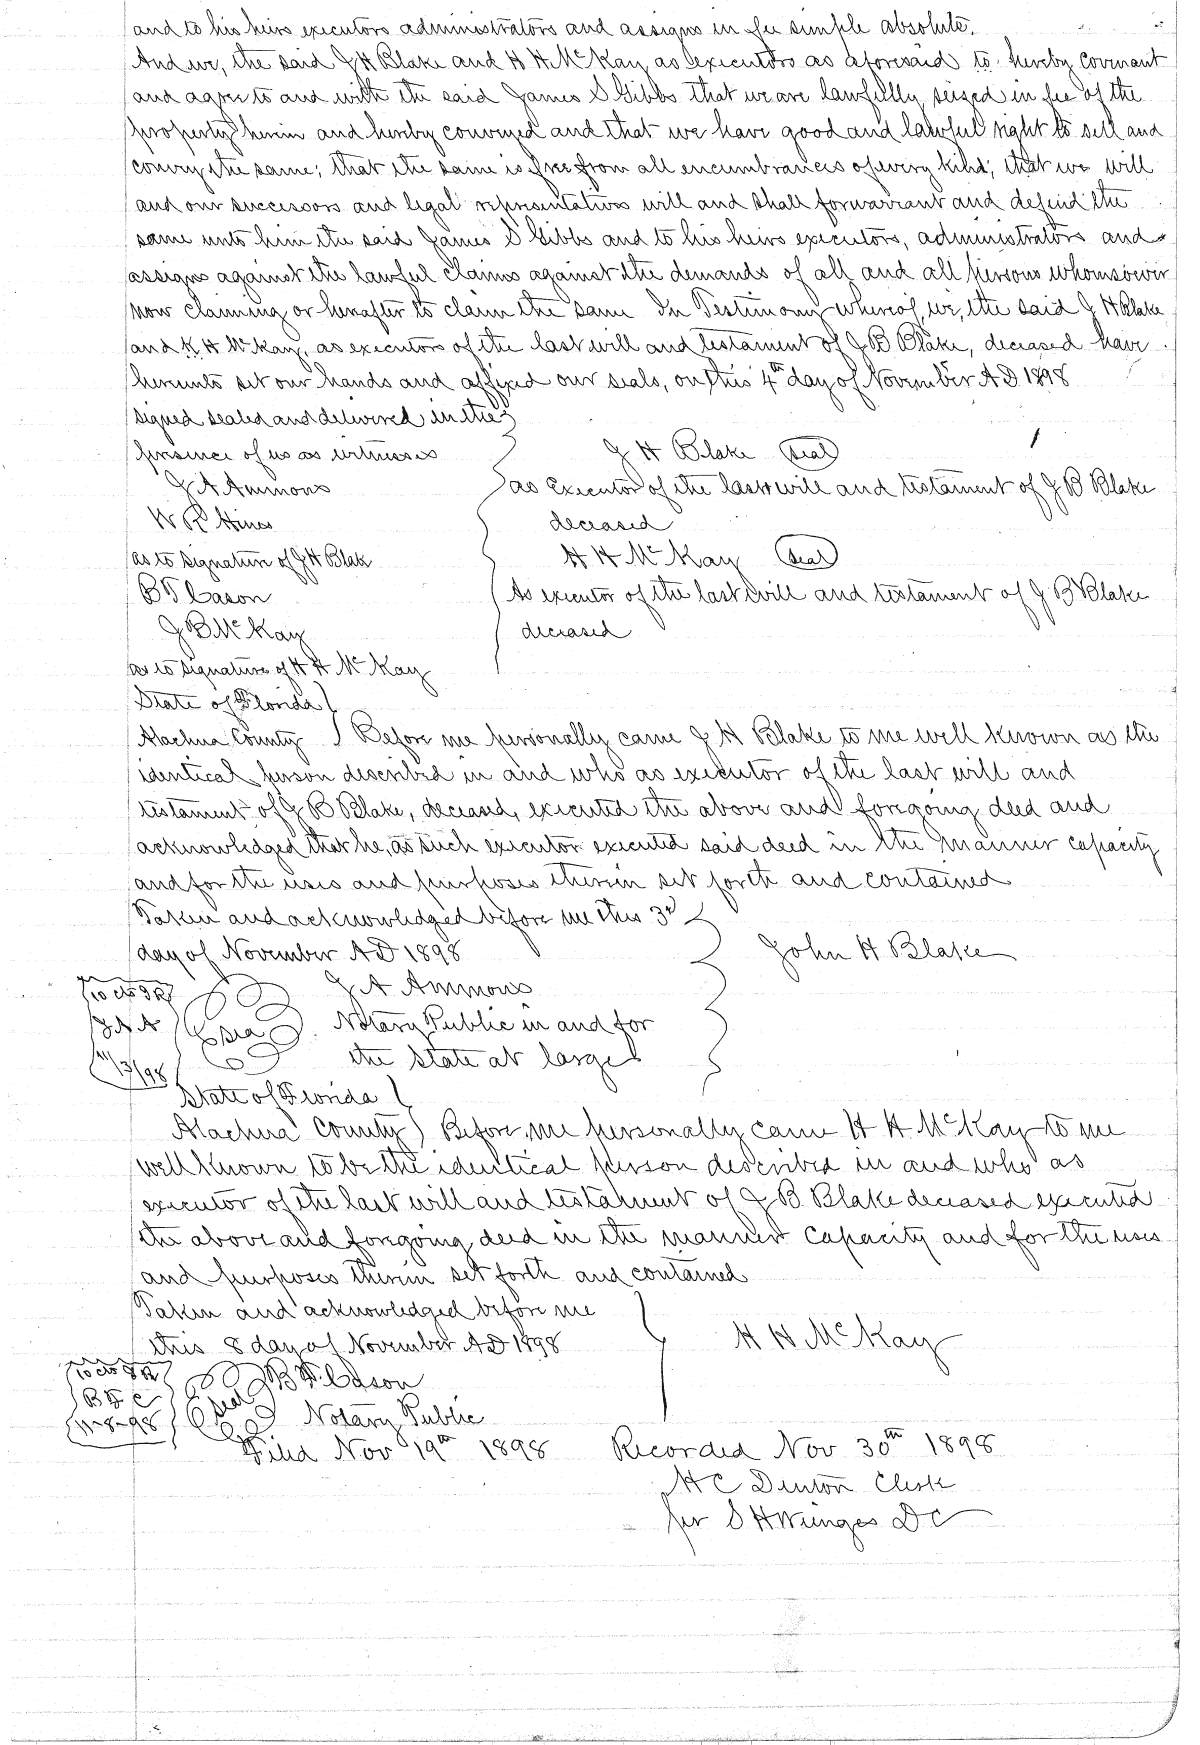 and to his heirs executors administrators and assigns in fee simple absolute.
And we, the said J H Blake and H H McKay as executors as aforesaid to hereby covenant
and agree to and with the said James S Gibbs that we are lawfully seized in fee of the
property herein and hereby conveyed and that we have good and lawful right to sell and
convey the same; that the same is free from all encumbrances of every kind; that we will
and our successors and legal representatives will and shall forwarrant and defend the
same unto him the said James S Gibbs and to his heirs executors, administrators and
assigns against the lawful claims against the demands of all and all persons whomsoever
now claiming or hereafter to claim the same In Testimony whereof, we, the said J H Blake
and H H McKay, as executors of the last will and testament of J B Blake, deceased have
hereunto set our hands and affixed our seals, on this 4th day of November A.D. 1898
signed sealed and delivered in the
presence of us as witnesses
J H Blake seal
J A Ammons
as executor of the last will and testament of J B Blake
W R Hines
deceased
as to signature of J H Blake
H H McKay seal
B F Cason
As executor of the last will and testament of J B Blake
J B McKay
deceased
as to signature of H H McKay
State of Florida
Alachua County Before me personally came J H Blake to me well known as the
identical person described in and who as executor of the last will and
testament of J B Blake, deceased, executed the above and foregoing deed and
acknowledged that he, as such executor executed said deed in the manner capacity
and for the uses and purposes therein set forth and contained
Taken and acknowledged before me this 3d
day of November A D 1898
John H Blake
10 cts I R
J A A
11/3/98
seal
J A Ammons
Notary Public in and for
the State at large
State of Florida
Alachua County Before me personally came H H McKay to me
well known to be the identical person described in and who as
executor of the last will and testament of J B Blake deceased executed
the above and foregoing deed in the manner capacity and for the uses
and purposes therein set forth and contained
Taken and acknowledged before me
this 8 day of November A D 1898
H H McKay
10 cts I R
B F C
11-8-98
seal
B F Cason
Notary Public
Filed Nov 19th 1898 Recorded Nov 30th 1898
H C Denton Clerk
per S H Wienges D C